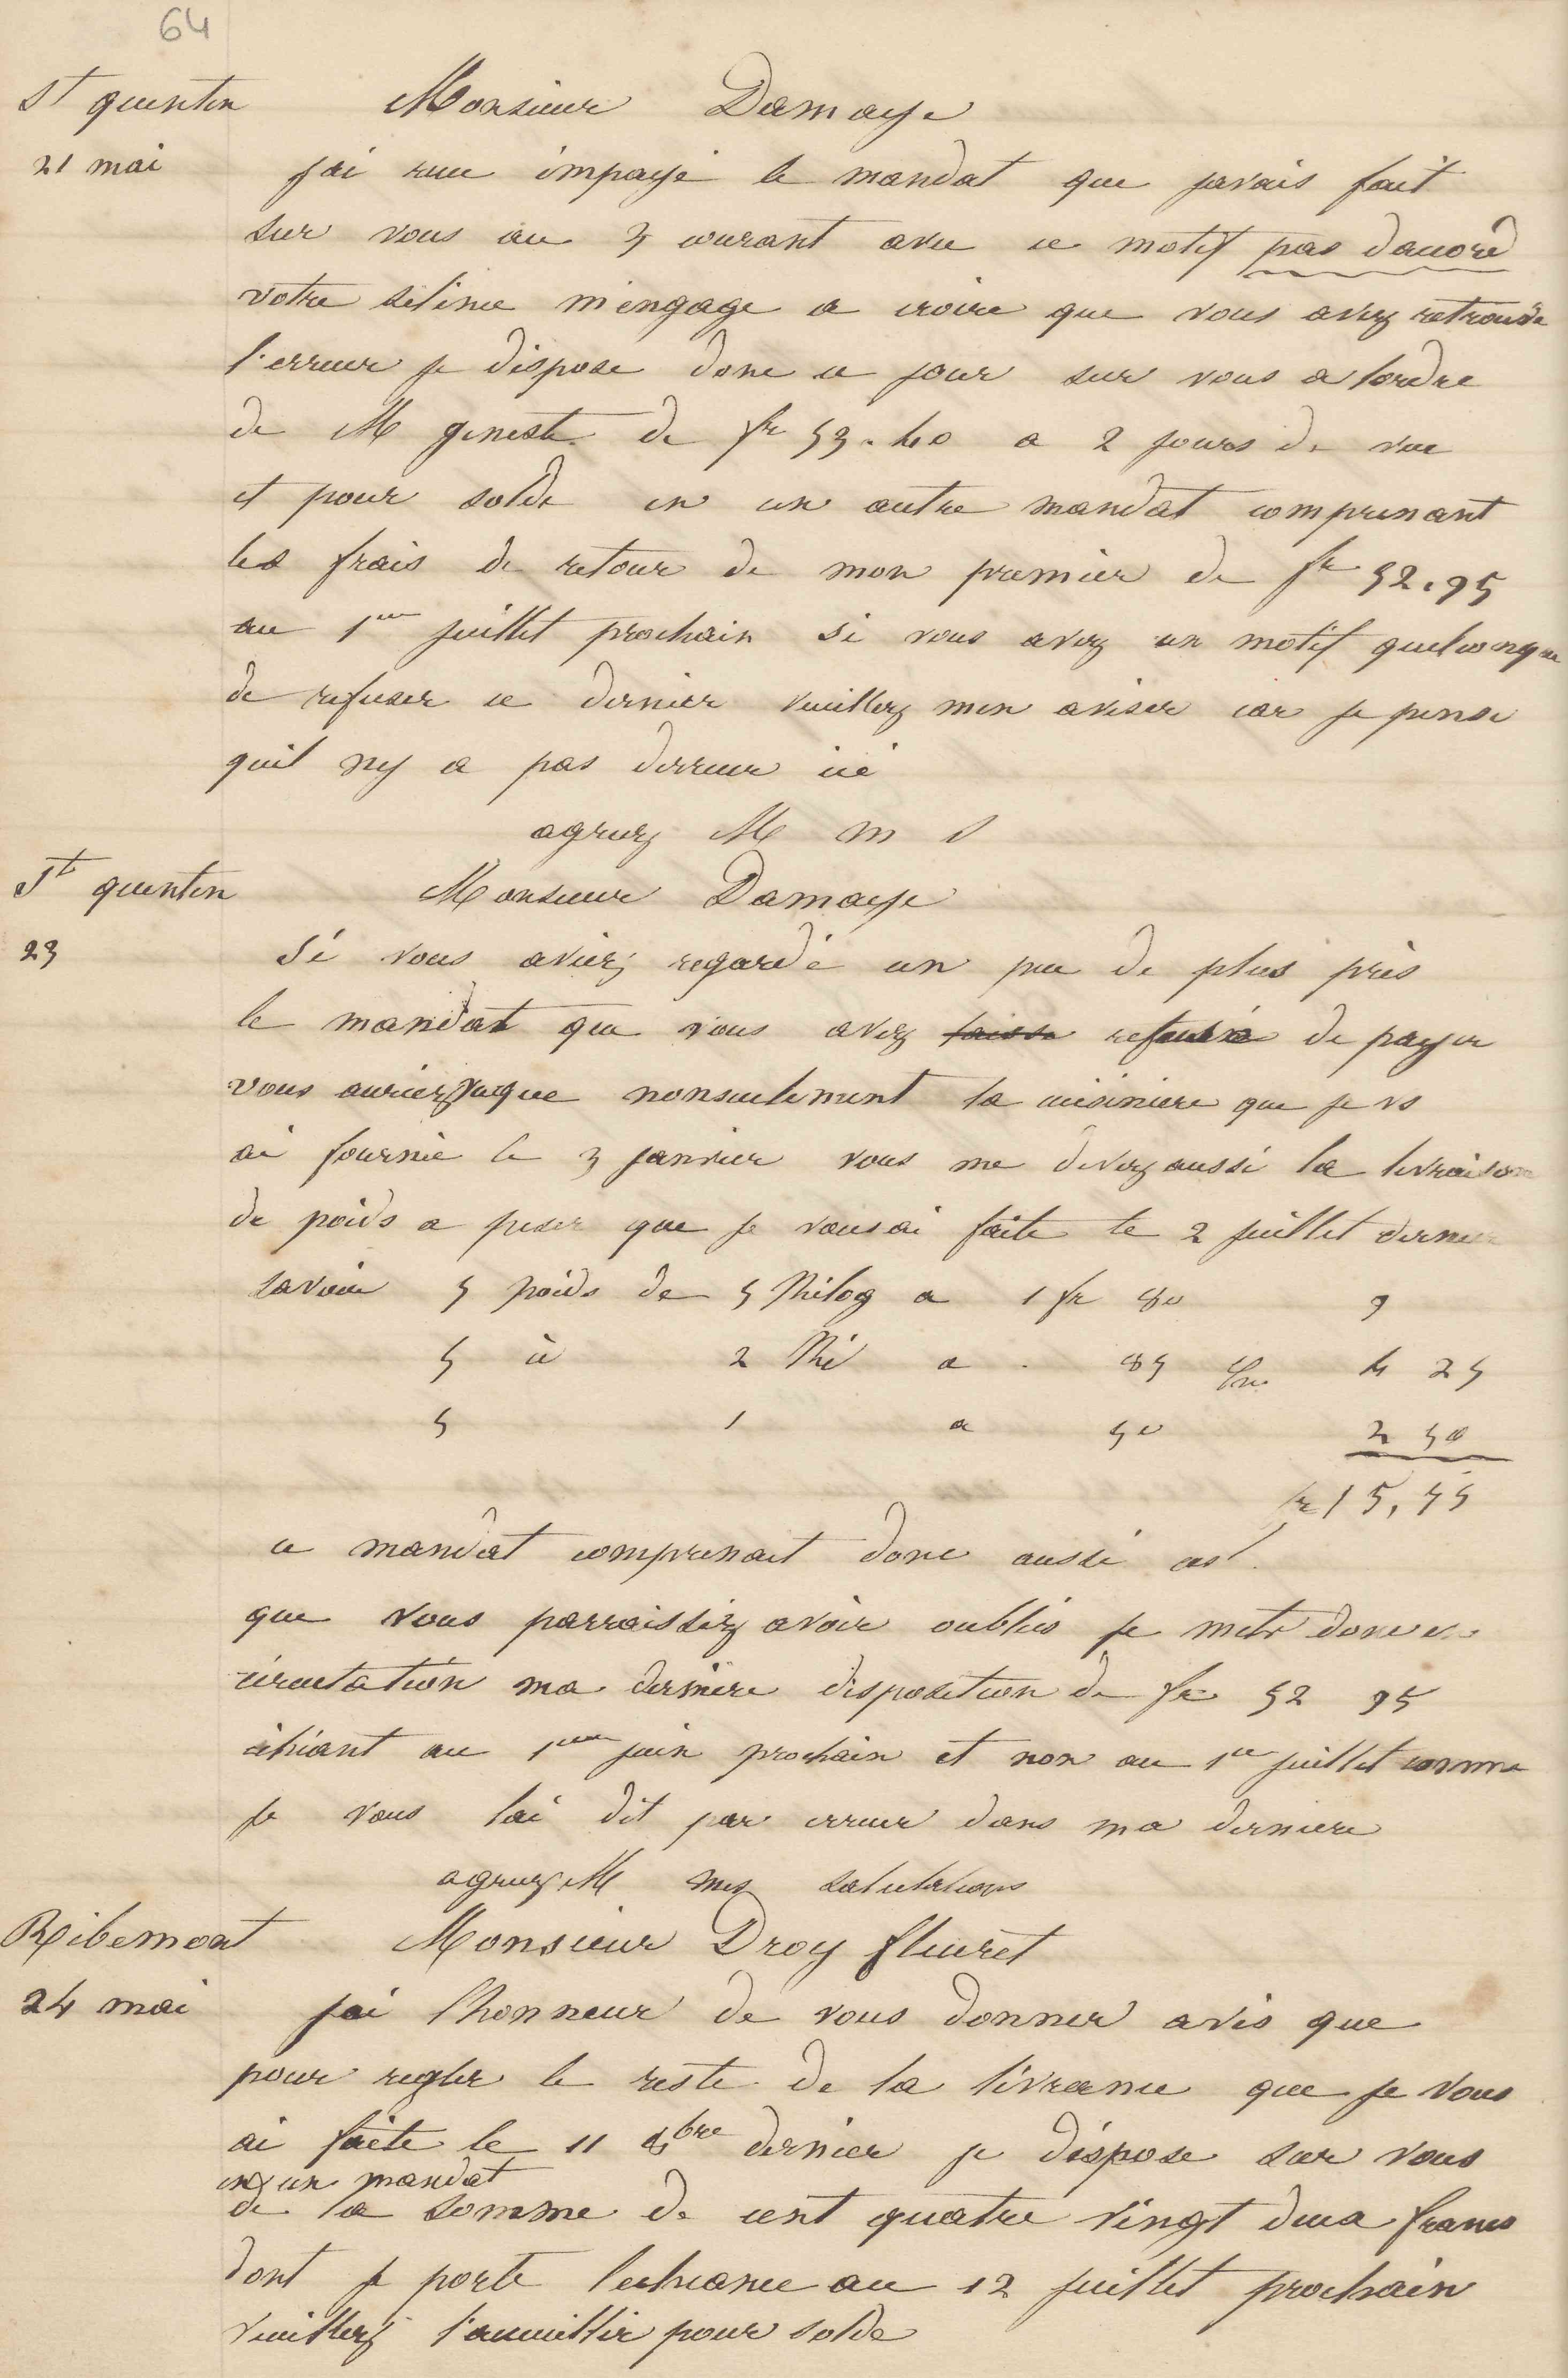 64
St quentin Monsieur Damaye
21 mai jai recu impayé le mandat que javais fait
sur vous au 5 courant avec ce motif pas daccord
votre silince m'engage a croire que vous avez retrouvé
l'erreur je dispose donc ce jour sur vous a lordre
de M geneste de fr 53.40 a 2 jours de vue
et pour solde en un autre mandat comprenant
les frais de retour de mon premier de fr 52.95
au 1er juillet prochain si vous avez un motif quelconque
de refuser ce dernier veuillez men aviser car je pense
quil ny a pas derreur ici
agreez M m s
St quentin Monsieur Damaye
23 Si vous aviez regardé un peu de plus près
le mandat que vous avez laissé refusé de payer
vous auriez vu que nonseulement la cuisiniere que je vs
ai fournie le 5 janvier vous me devez aussi la livraison
de poids a peser que je vous ai faite le 2 juillet dernier
savoir 5 poids de 5 Kilog a 1 fr 80 9
5 à 2 Ki a . 85 4 25
5 1 a 50 2 50
fr 15,55
ce mandat comprenait donc aussi cet
que vous parraissiez avoir oubliés je mets donc en
circulation ma derniere disposition de fr 52 95
échéant au 1er juin prochain et non au 1er juillet comme
je vous lai dit par erreur dans ma derniere
agreez M mes salutations
Ribemont Monsieur Droy fleuret
24 mai jai lhonneur de vous donner avis que
pour regler le reste de la livrance que je vous
ai faite le 11 8bre dernier je dispose sur vous
en un mandat
de la somme de cent quatre vingt deux francs
dont je porte lecheance au 12 juillet prochain
veuillez l'accueillir pour solde